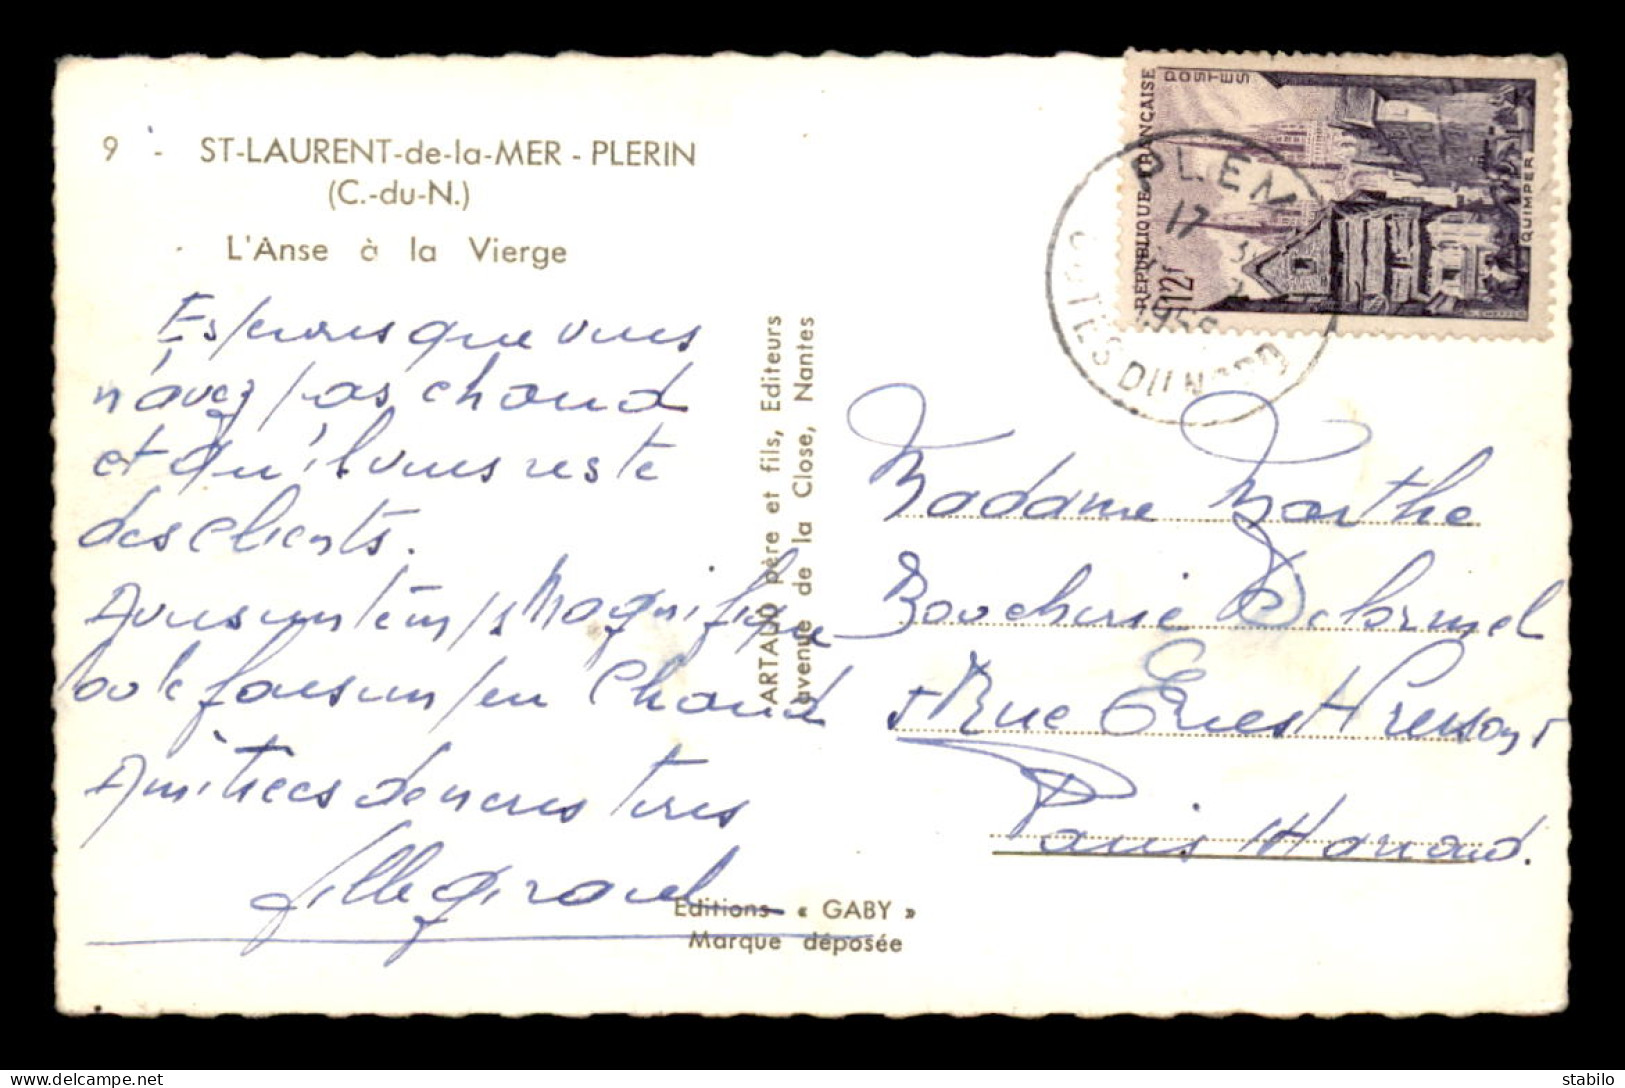 9 - ST-LAURENT-de-la-MER - PLERIN
(C.-du-N.)
L'Anse à la Vierge
Espérons que vous
n'avez pas chaud
et qu'il vous reste
des clients.
Avons un temps Magnifique
on le faisun peu Chaud
Amitiées de nous tres
giraud
Editions « GABY »
Marque déposée
ARTAUD père et fils, Editeurs
avenue de la Close, Nantes
REPUBLIQUE FRANÇAISE
POSTES
12f
QUIMPER
PLEM
17
195
COTES DU NORD
Madame Marthe
Boucherie Delormel
Rue Ernest
Paris
stabilo